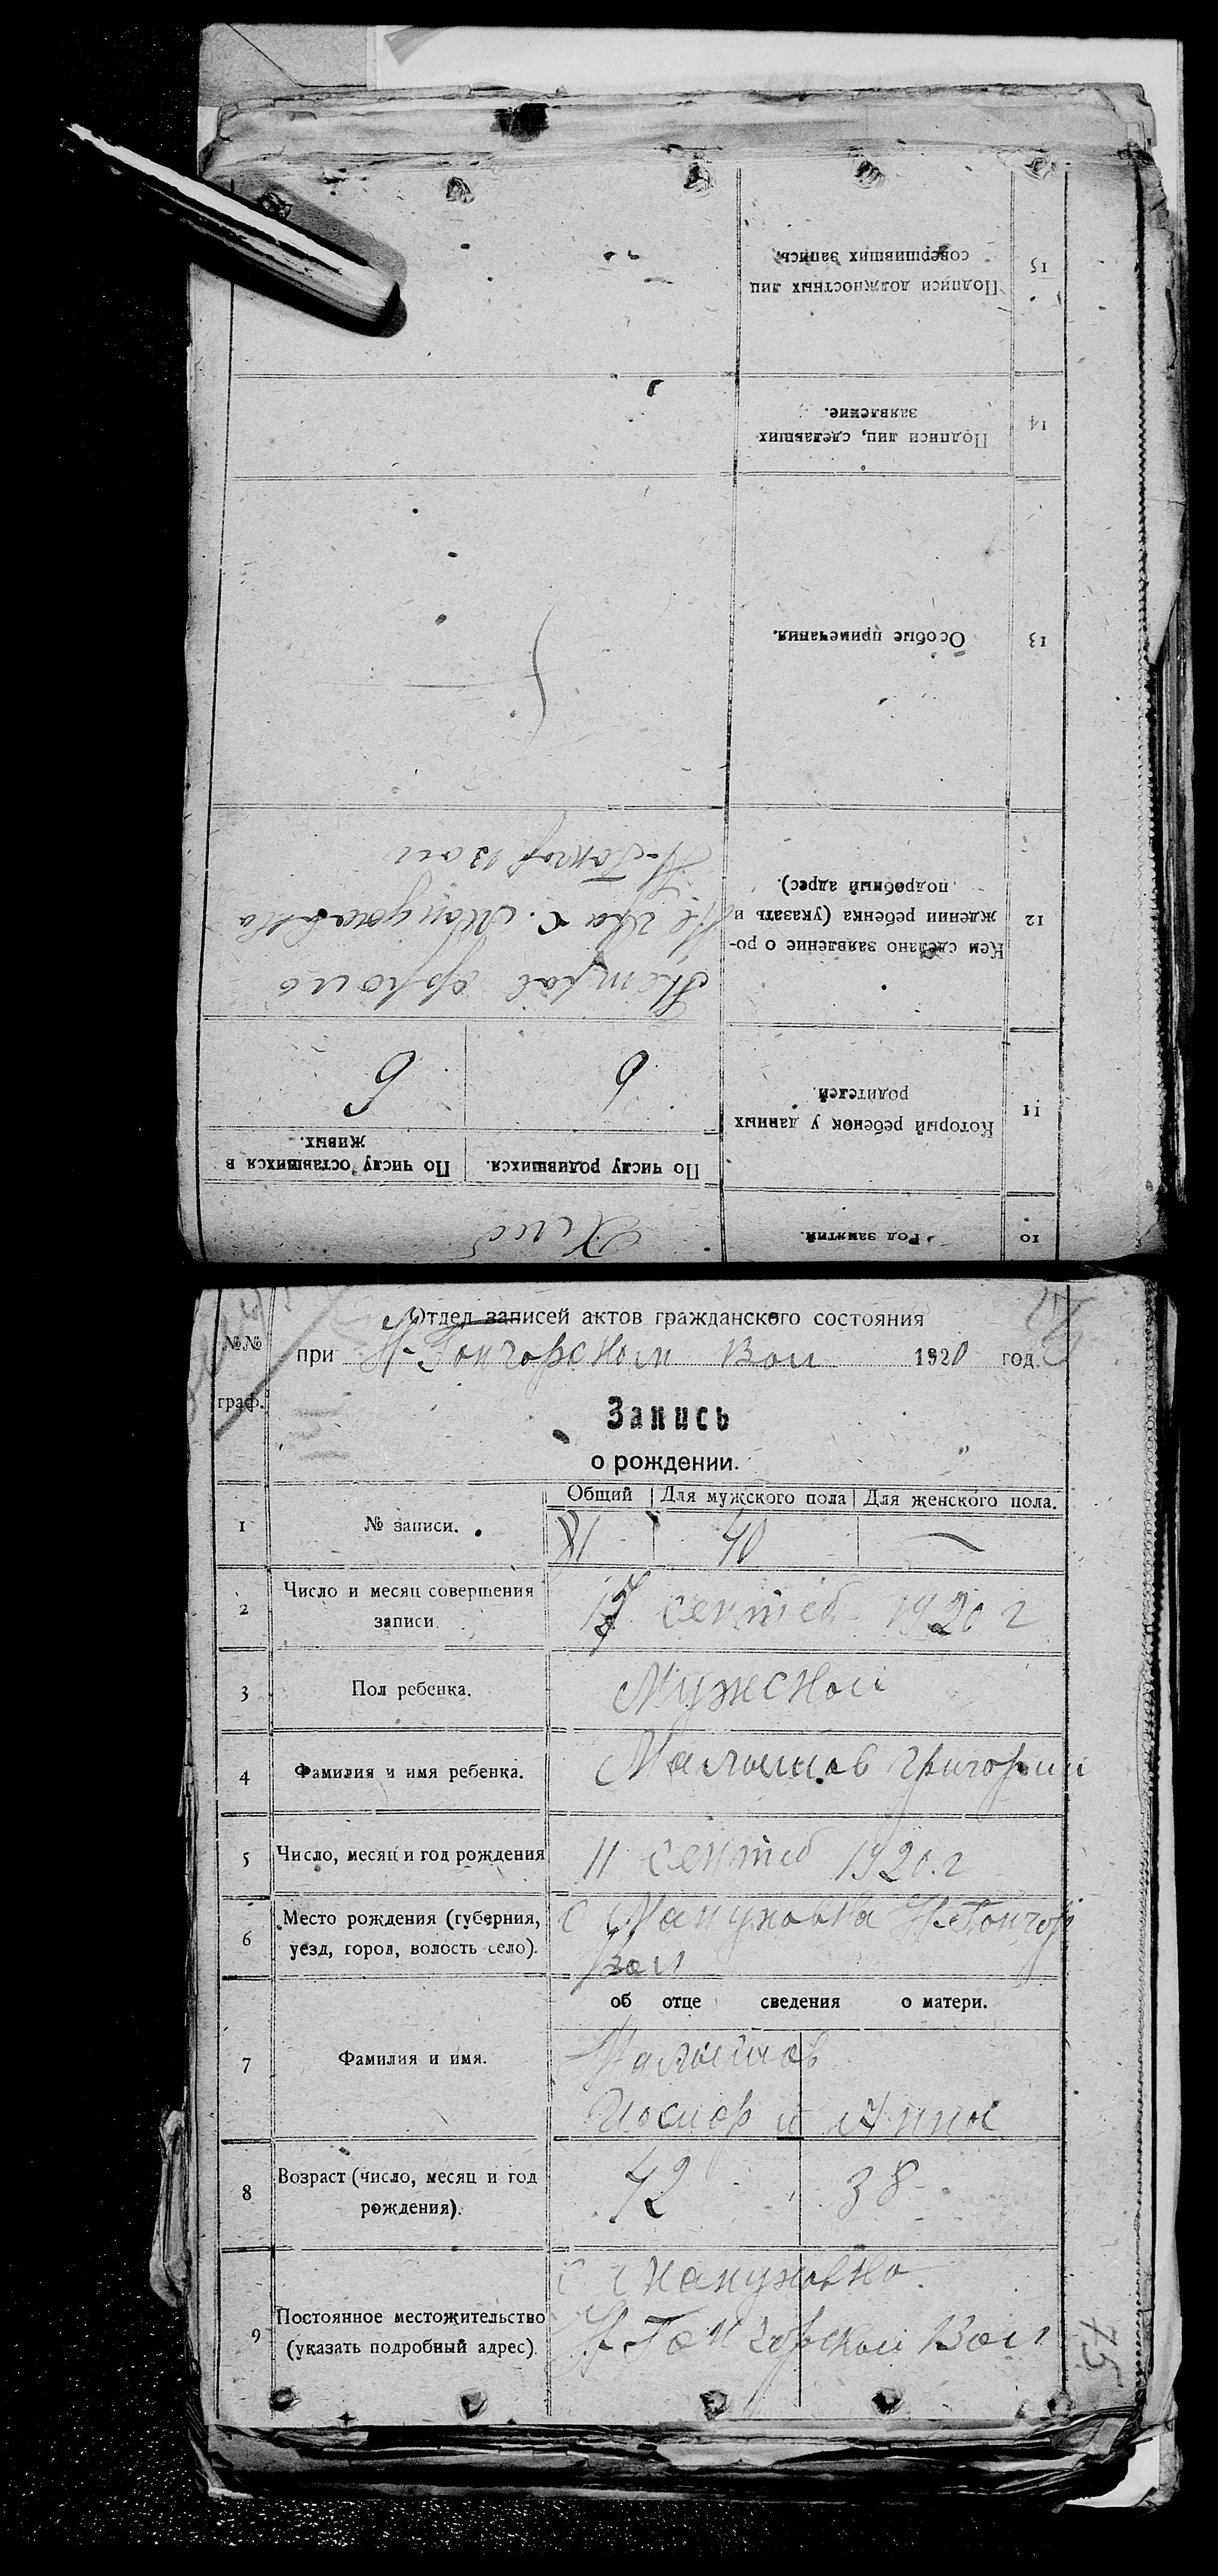 Отдел записей актов гражданского состояния
при Н-Гончорском Вол 1920 год.
№№ граф.
Запись
о рождении.
Общий Для мужского пола Для женского пола.
1 № записи. 81 40 —
2 Число и месяц совершения
записи. 17 сентеб 1920 г
3 Пол ребенка. Мужской
4 Фамилия и имя ребенка. Григории
5 Число, месяц и год рождения 11 сентеб 1920.г
6 Место рождения (губерния, с Мануковка Н-Гончор
уезд, город, волость село). Вол
об отце сведения о матери.
7 Фамилия и имя.
Иосиф и Анна
8 Возраст (число, месяц и год 42 38
рождения).
с Мануковка
9 Постоянное местожительство
(указать подробный адрес). Н-Гончорской Вол
75
10 Род занятий. Хлеб
По числу родившихся. По числу оставшихся в
живых.
11 Который ребенок у данных
родителей. 6 6
12 Кем сделано заявление о ро-
ждении ребенка (указать и
подробный адрес).
с. Мануковка
Н-Гончор вол
13 Особые примечания.
14 Подписи лиц, сделавших
заявление.
15 Подписи должностных лиц
совершивших запись.